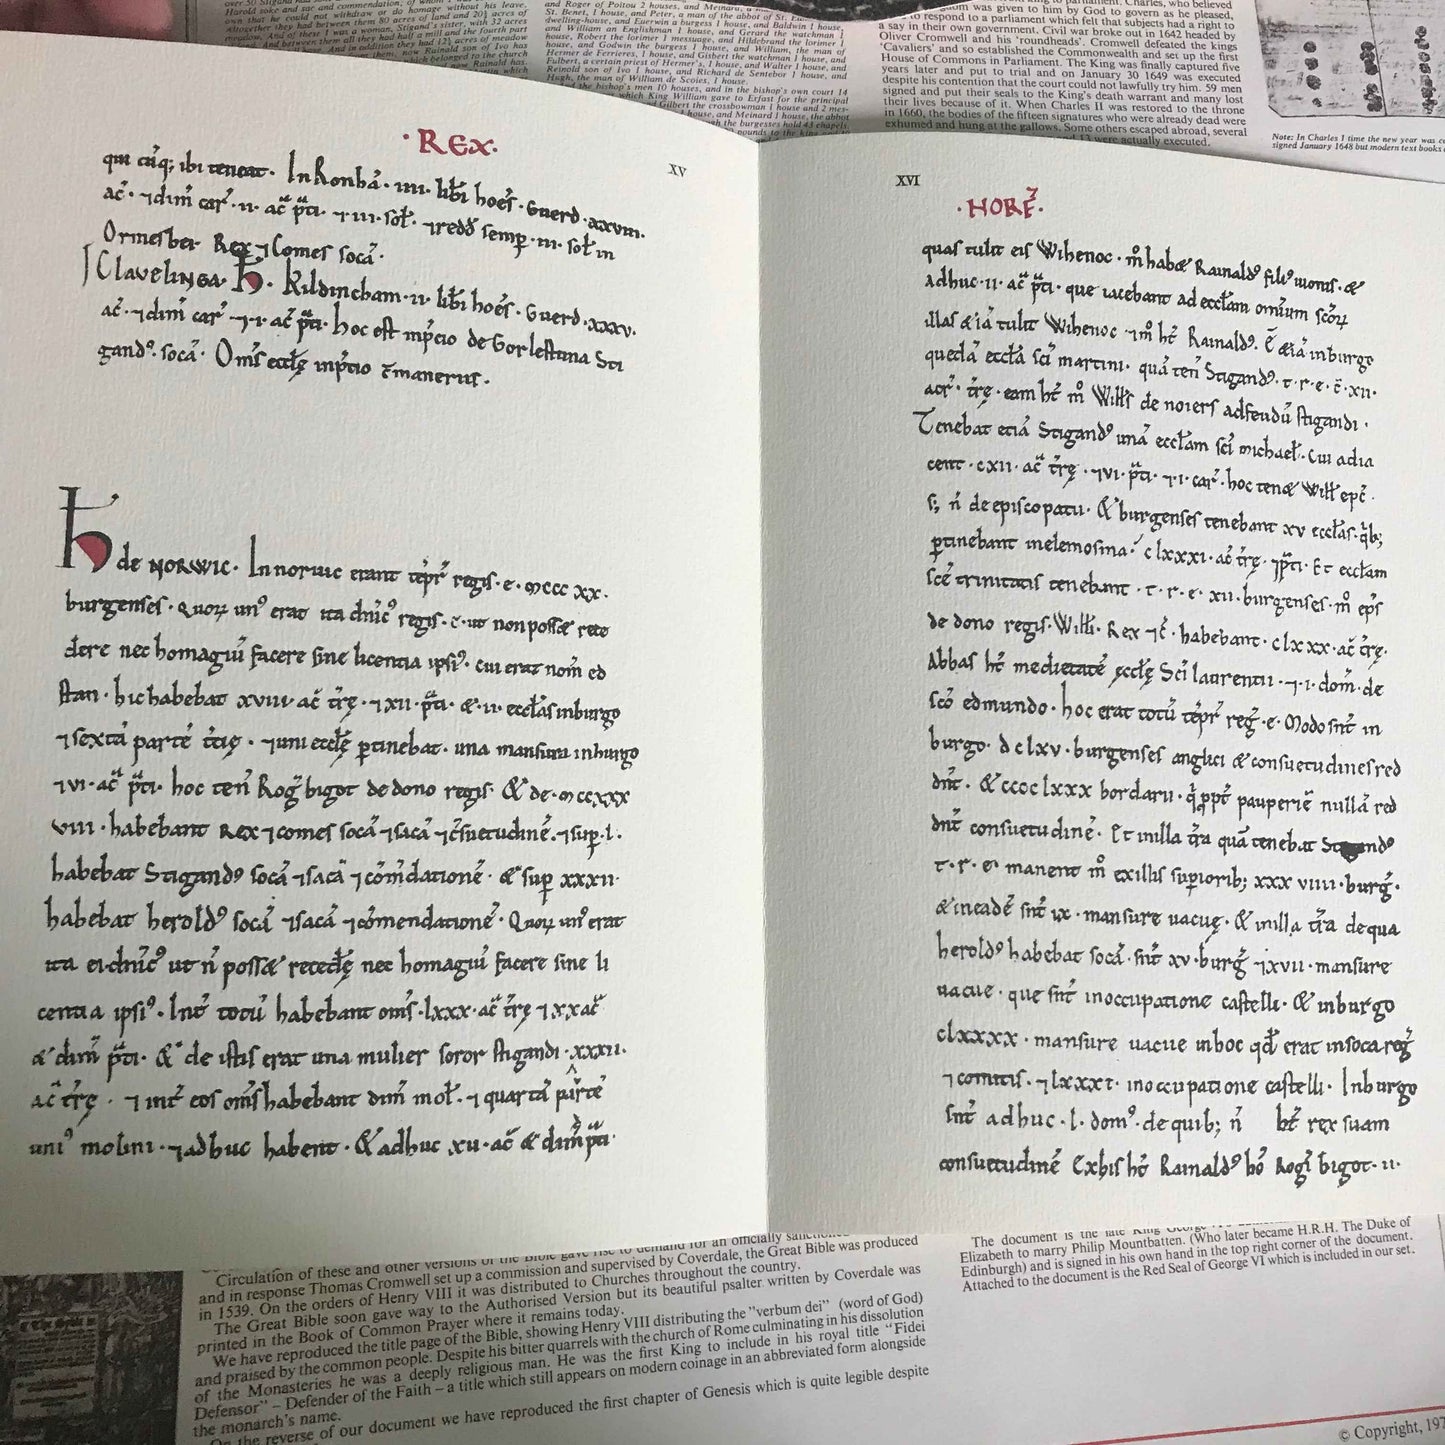 and Roger of Poitou 2 houses, and Meinard, a
own that he could not withdraw or do homage without his leave.
he had between them 80 acres of land and 20½ acres of
of these 1 was a woman, Stigand's sister, with 32 acres
between them all they had half a mill and the fourth part
And in addition they had 12½ acres of meadow
St. Benet, 1 house, and Peter, a man of the abbot of St.
dwelling-house, and Everwin a burgess 1 house, and Baldwin 1 house
and William an Englishman 1 house, and Gerard the watchman 1
house, Robert the lorimer 1 message, and Hildebrand the lorimer 1
house, and Godwin the burgess 1 house, and William, the man of
Hermer de Ferreires, 1 house, and Gisbert the watchman 1 house, and
Fulbert, a certain priest of Hermer's, 1 house, and Walter 1 house, and
Reinold son of Ivo 1 house, and Richard de Sentebor 1 house, and
Hugh, the man of William de Scoies, 1 house.
the bishop's men 10 houses, and in the bishop's own court 14
which King William gave to Erfast for the principal
Gilbert the crossbowman 1 house and 2 mes-
and Meinard 1 house, the abbot
the burgesses hold 43 chapels.
was given to him by God to govern as he pleased,
to respond to a parliament which felt that subjects had a right to
a say in their own government. Civil war broke out in 1642 headed by
Oliver Cromwell and his 'roundheads'. Cromwell defeated the kings
'Cavaliers' and so established the Commonwealth and set up the first
House of Commons in Parliament. The King was finally captured five
years later and put to trial and on January 30 1649 was executed
despite his contention that the court could not lawfully try him. 59 men
signed and put their seals to the King's death warrant and many lost
their lives because of it. When Charles II was restored to the throne
in 1660, the bodies of the fifteen signatures who were already dead were
exhumed and hung at the gallows. Some others escaped abroad, several
13 were actually executed.
Note: In Charles 1 time the new year was
signed January 1648 but modern text books
·REX·
XV
qui cūq; ibi teneat· In Ronhā· iiii· libi hoēs· Guerd· xxviii·
ac̄· ⁊ dim̄ car̄· ii· ac̄ p̄ti· ⁊ iii· sol̄· ⁊ redd̄ semp̄· iii· sol̄ in
Ormesbei· Rex ⁊ Comes socā·
In Clavelinga· H· Kildincham· ii· libi hoēs· Guerd· xxxv·
ac̄· ⁊ dim̄ car̄· ⁊ i· ac̄ p̄ti· hoc est inp̄cio de Gorlestuna Sti
gandꝰ· socā· Om̄s eccl̄ę inp̄tio st̄ manerus·
H de NORWIC· In noruic erant tēpr̄ regis· e· mccc xx·
burgenses· quoꝝ unꝰ erat ita dn̄icꝰ regis· c· ut non posset rece
dere nec homagiū facere sine licentia ipsiꝰ· cui erat nom̄ ed
stan· hic habebat xviii· ac̄ tr̄ę· ⁊ xii· p̄ti· & ii· eccl̄as in burgo
⁊ sextā partē tcię· ⁊ uni eccl̄ę p̄tinebat· una mansura in burgo
⁊ vi· ac̄ p̄ti· hoc ten̄ Roḡ bigot de dono regis· & de· mccxxx
viii· habebant Rex ⁊ comes socā ⁊ sacā ⁊ c̄suetudinē· ⁊ sup̄· l·
habebat Stigandꝰ socā ⁊ sacā ⁊ cōm̄datione̅· & sup̄ xxxii·
habebat heroldꝰ socā ⁊ sacā ⁊ cōmendatione̅· Quoꝝ unꝰ erat
ita ei dn̄icꝰ ut n̄ posset recedę nec homagiū facere sine li
centia ipsiꝰ· Int̄ totū habebant om̄s· lxxx· ac̄ tr̄ę ⁊ xx ac̄
& dim̄ p̄ti· & de istis erat una mulier soror stigandi· xxxii·
ac̄ tr̄ę · ⁊ int̄ eos om̄s habebant dim̄ mol̄· ⁊ quartā partē
uniꝰ molini· ⁊ adhuc habent· & adhuc xii· ac̄ & dim̄ p̄ti·
XVI
·NORF̄·
quas tulit eis Wihenoc· m̊ habet Rainaldꝰ filiꝰ iuonis· &
adhuc· ii· ac̄ p̄ti· que iacebant ad eccl̄am omium sc̄oꝝ
illas & iā tulit Wihenoc ⁊ m̊ ht̄ Rainaldꝰ· Ē & iā in burgo
quedā eccl̄a sc̄i martini· quā ten̄ Stigandꝰ· t· r· e· c̄· xii·
acr̄· tr̄ę· eam ht̄ m̊ Will̄s de noiers ad feudū stigandi·
Tenebat etiā Stigandꝰ unā eccl̄am sc̄i michael̄· cui adia
cent· cxii· ac̄ tr̄ę· ⁊ vi· p̄ti· ⁊ i· car̄· hoc tenet Will̄ epc̄·
s; n̄ de episcopatu· & burgenses tenebant xv eccl̄as· q̄b;
p̄tinebant in elemosina· clxxxi· ac̄ tr̄ę· ⁊ p̄ti· Et eccl̄am
sc̄ę trinitatis tenebant· t· r· e· xii· burgenses· m̊ ep̄s
de dono regis· Will̄i· Rex ⁊ c̄· habebant· clxxx· ac̄ tr̄ę·
Abbas ht̄ medietatē eccl̄ę Sc̄i laurentii· ⁊ i· dom̄· de
sc̄o edmundo· hoc erat totū tēpr̄ reg̅· e· Modo sn̄t in
burgo· dclxv· burgenses anglici & consuetudines red
dn̄t· & cccclxxx bordarii· q̄ ppt̄ pauperiē nullā red
dn̄t consuetudinē· Et in illa tr̄a quā tenebat Stigandꝰ
t· r· e· manent m̊ ex illis supiorib; xxx viiii· burg̅·
& in eadē sn̄t ix· mansure uacuę· & in illa tr̄a de qua
heroldꝰ habebat socā· sn̄t xv· burg̅ ⁊ xvii· mansure
uacue· que sn̄t in occupatione castelli· & in burgo
clxxxx· mansure uacue in hoc qd̄ erat in soca reg̅
⁊ comitis· ⁊ lxxxi· in occupatione castelli· In burgo
sn̄t adhuc· l· domꝰ· de quib; n̄ ht̄ rex suam
consuetudinē Ex his ht̄ Rainaldꝰ hō Rog̅i bigot· ii·
Circulation of these and other versions of the Bible gave rise to demand for an officially sanctioned
and in response Thomas Cromwell set up a commission and supervised by Coverdale, the Great Bible was produced
in 1539. On the orders of Henry VIII it was distributed to Churches throughout the country.
The Great Bible soon gave way to the Authorised Version but its beautiful psalter written by Coverdale was
printed in the Book of Common Prayer where it remains today.
We have reproduced the title page of the Bible, showing Henry VIII distributing the "verbum dei" (word of God)
and praised by the common people. Despite his bitter quarrels with the church of Rome culminating in his dissolution
of the Monasteries he was a deeply religious man. He was the first King to include in his royal title "Fidei
Defensor" – Defender of the Faith – a title which still appears on modern coinage in an abbreviated form alongside
the monarch's name.
On the reverse of our document we have reproduced the first chapter of Genesis which is quite legible despite
The document is the late King George
Elizabeth to marry Philip Mountbatten. (Who later became H.R.H. The Duke of
Edinburgh) and is signed in his own hand in the top right corner of the document.
Attached to the document is the Red Seal of George VI which is included in our set.
© Copyright, 197